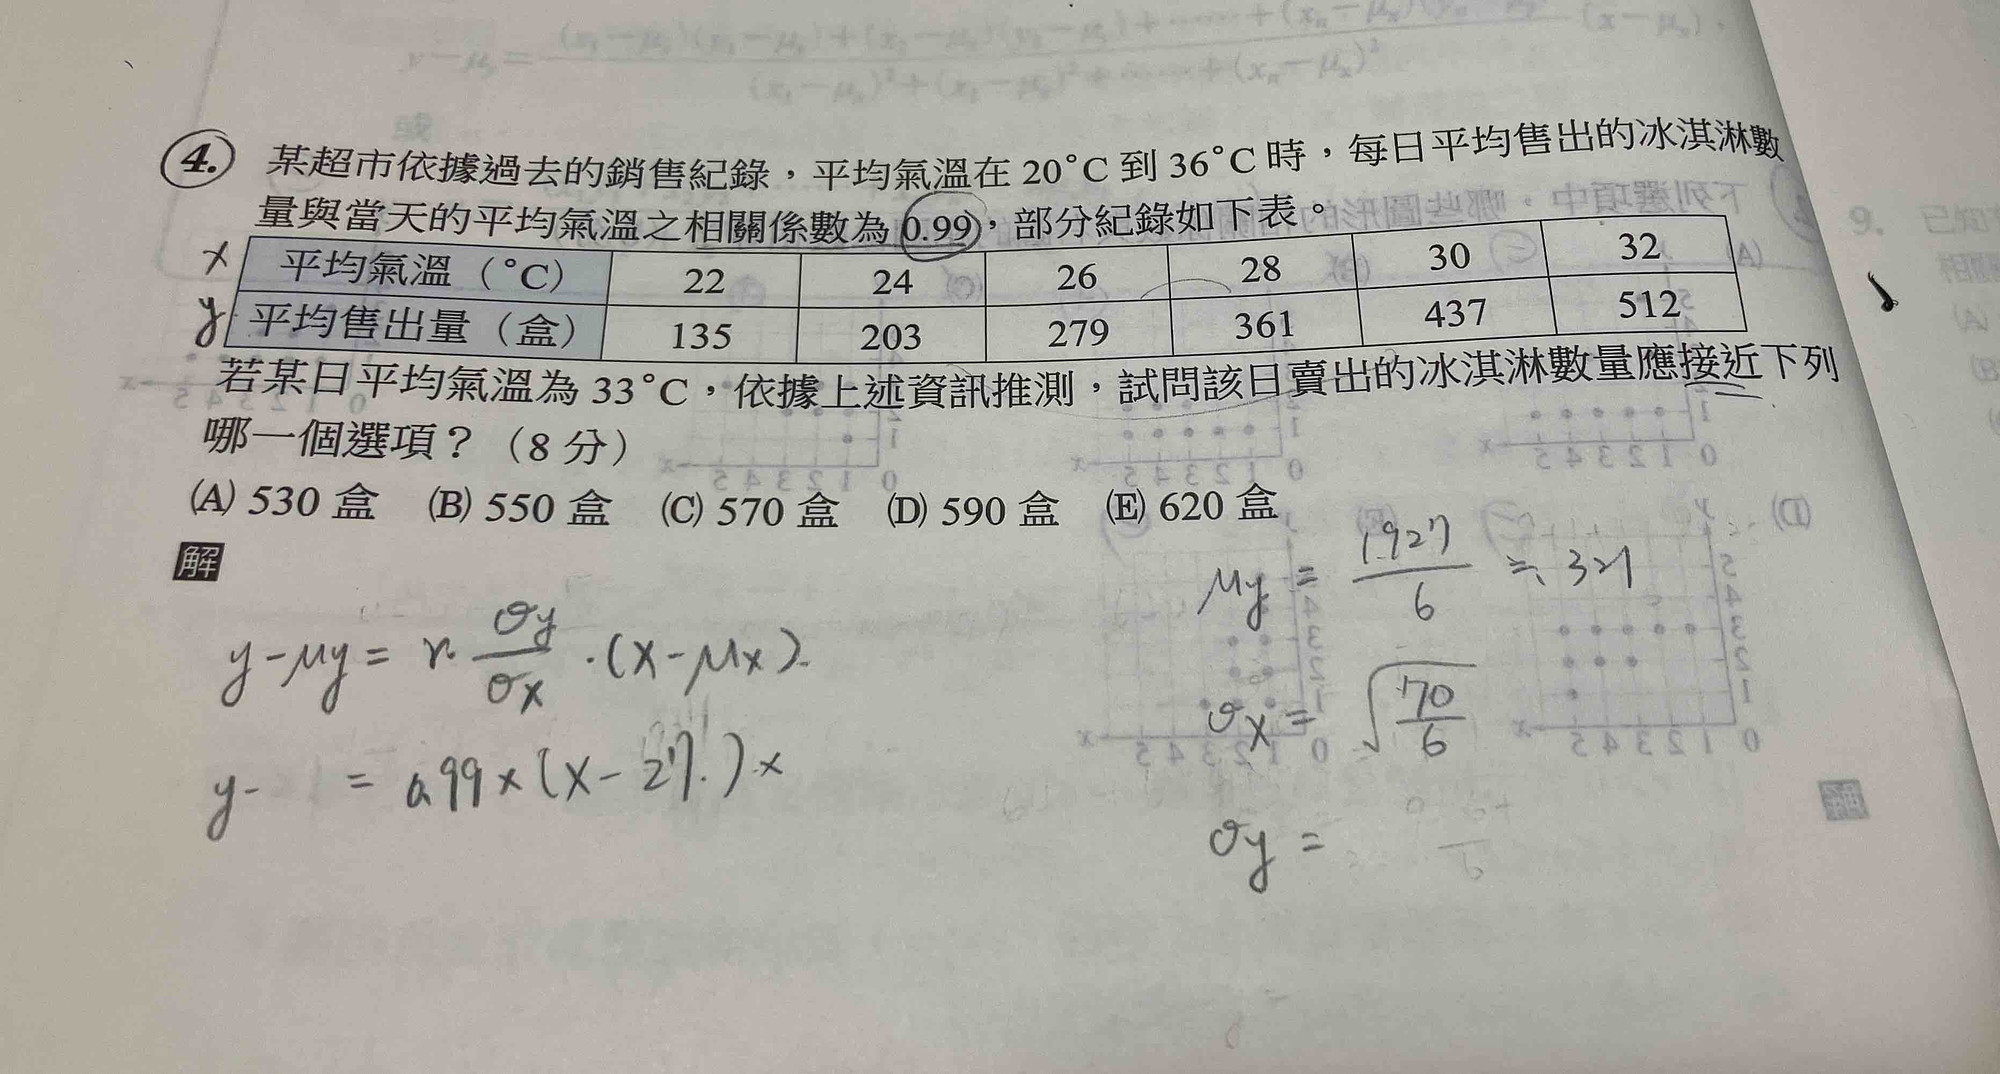 4. 某超市依據過去的銷售紀錄，平均氣溫在 20°C 到 36°C 時，每日平均售出的冰淇淋數
量與當天的平均氣溫之相關係數為 0.99，部分紀錄如下表。
x 平均氣溫（°C） 22 24 26 28 30 32
y 平均售出量（盒） 135 203 279 361 437 512
若某日平均氣溫為 33°C，依據上述資訊推測，試問該日賣出的冰淇淋數量應接近下列
哪一個選項？（8 分）
(A) 530 盒 (B) 550 盒 (C) 570 盒 (D) 590 盒 (E) 620 盒
解
y-μy = r·σy/σx·(x-μx).
y- = 0.99×(x-27.)×
μy = 1927/6 ≒ 321
σx = √70/6
σy =
9.